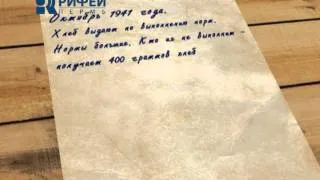 РИФЕЙ
ПЕРМЬ
Октябрь 1941 года.
Хлеб выдают по выполнению норм.
Нормы большие. Кто их не выполнит -
получает 400 граммов хлеб